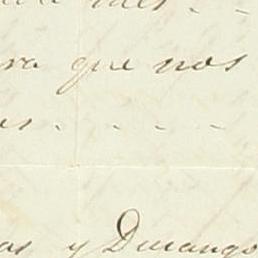 ra que nos
as . . . .
as y Durango